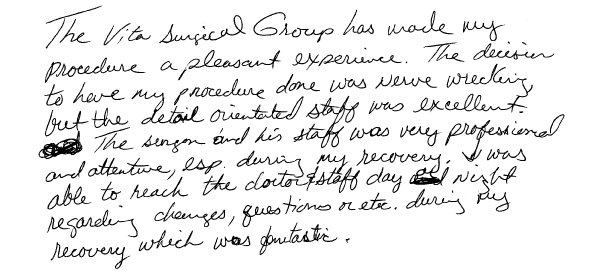 The Vita Surgical Group has made my
procedure a pleasant experience. The decision
to have my procedure done was nerve wrecking,
but the detail orientated staff was excellent.
The surgeon and his staff was very professional
and attentive, esp. during my recovery. I was
able to reach the doctor & staff day night
regarding changes, questions or etc. during my
recovery which was fantastic.